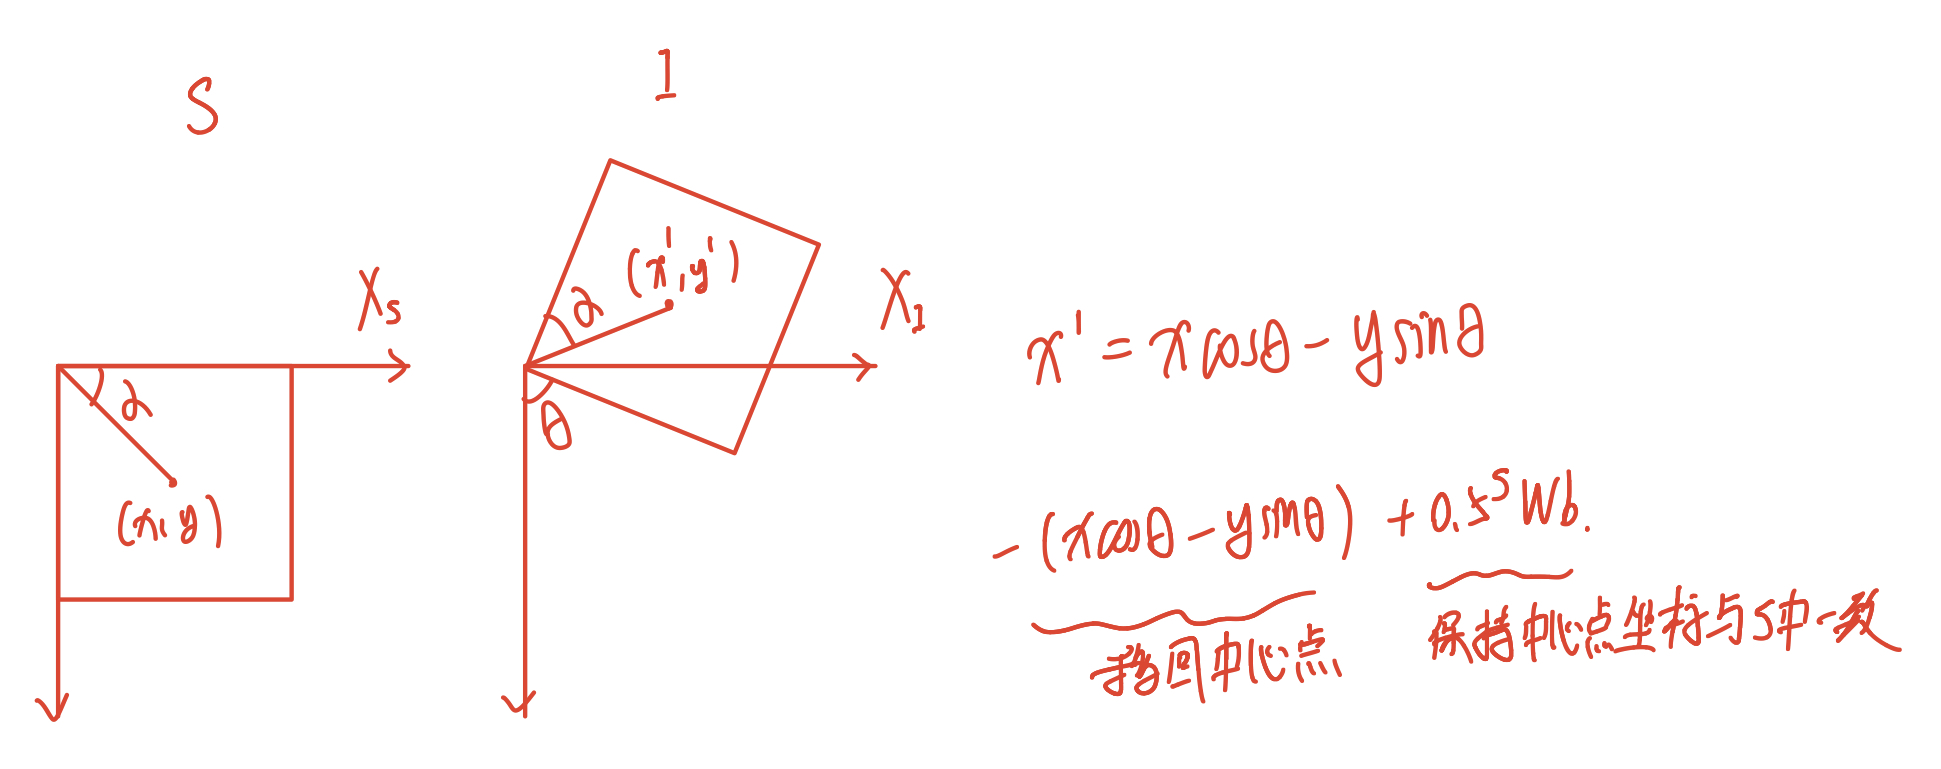 S
I
Xs
X1
α
(x, y)
α
(x', y')
θ
x' = xcosθ - ysinθ
- (xcosθ - ysinθ) + 0.5 ˢWb.
移回中心点
保持中心点坐标与S中一致